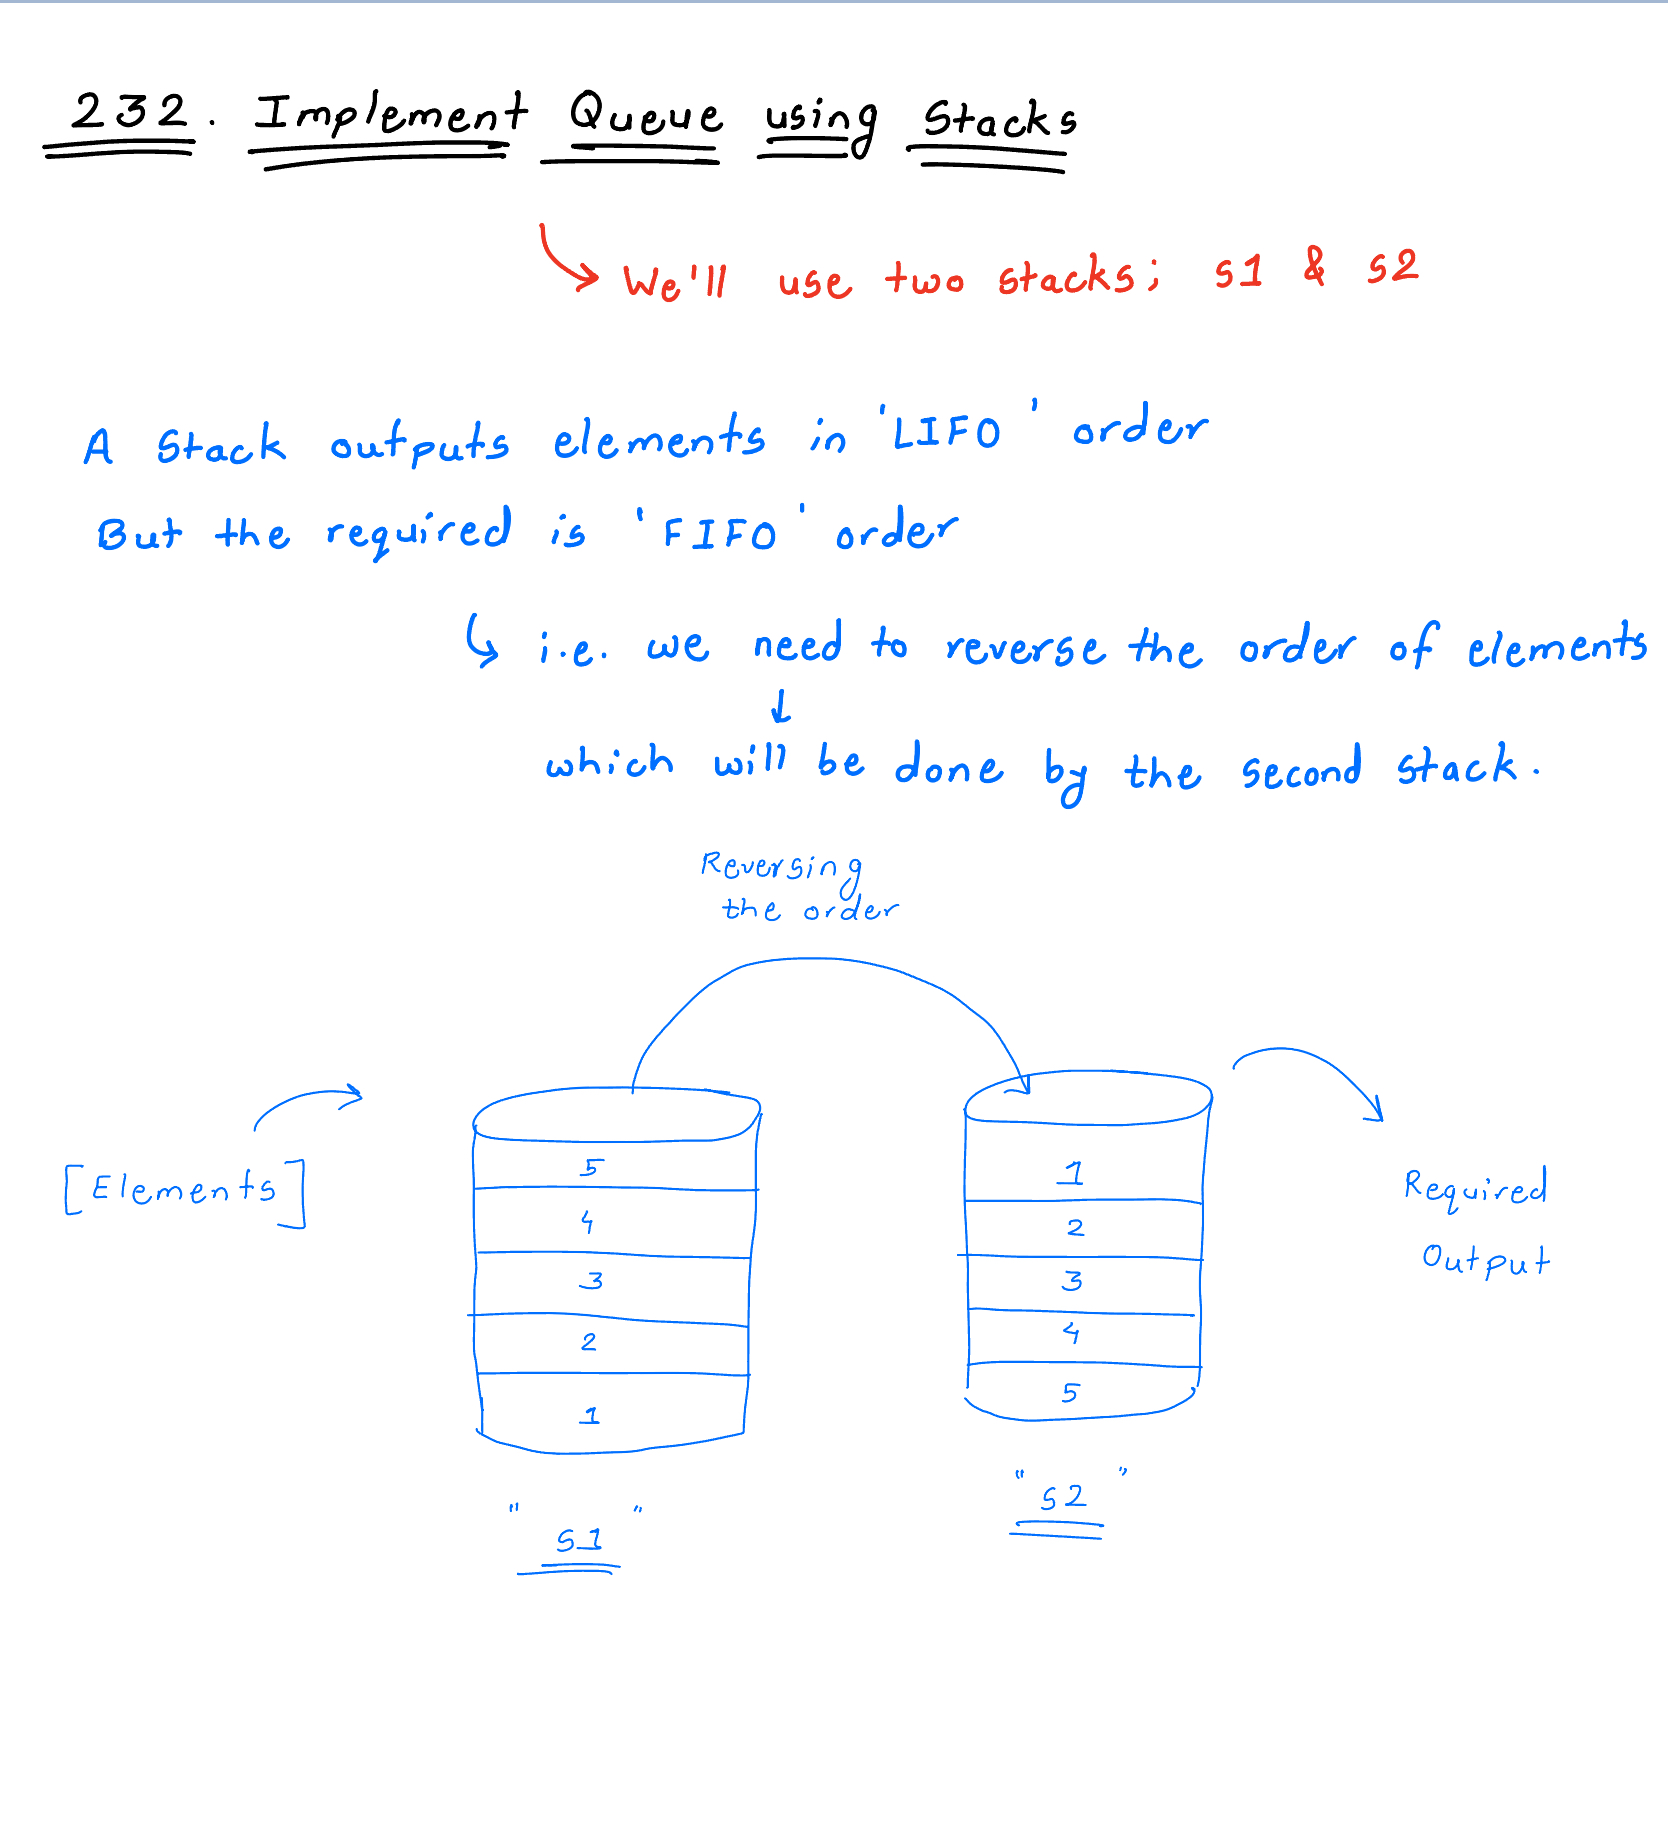 232. Implement Queue using Stacks
We'll use two stacks; s1 & s2
A Stack outputs elements in 'LIFO' order
But the required is 'FIFO' order
i.e. we need to reverse the order of elements
which will be done by the second stack.
Reversing
the order
[Elements]
5
4
3
2
1
"s1"
1
2
3
4
5
"s2"
Required
Output